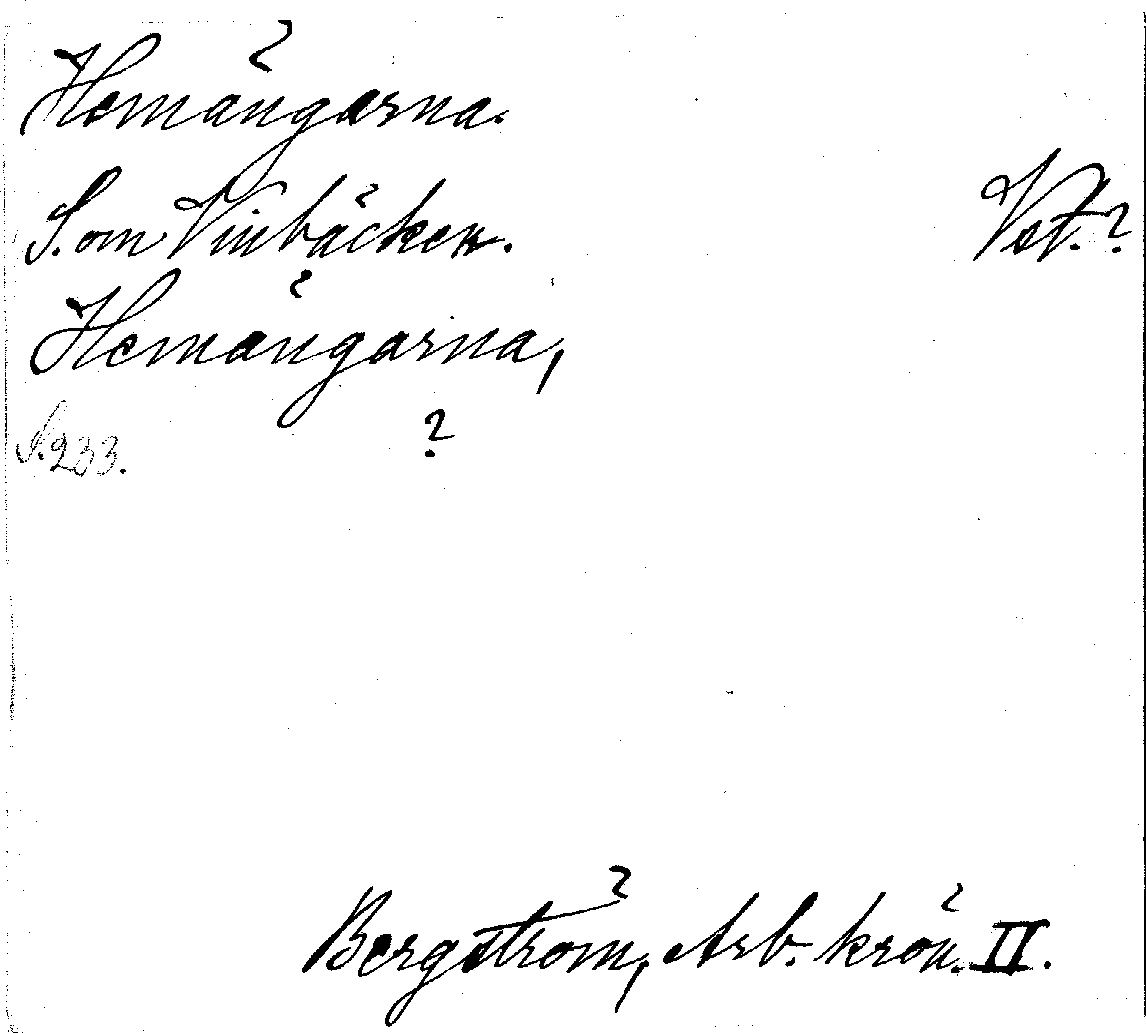 Hemängarna.
S. om Vinbäcken. Vst.?
Hemängarna,
S. 233. ?
Bergström, Arb. krön. II.